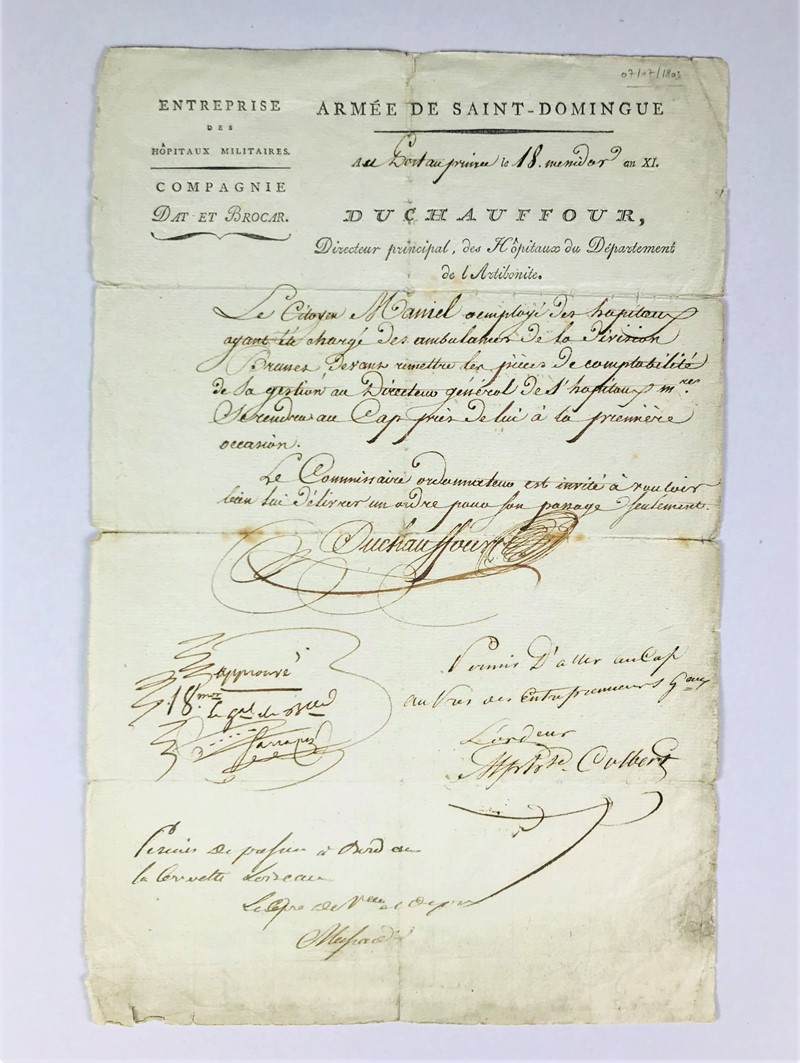 07/07/1803
ENTREPRISE
DES
HÔPITAUX MILITAIRES.
COMPAGNIE
DAT ET BROCAR.
ARMÉE DE SAINT-DOMINGUE
Au Port au prince le 18. messidor an XI.
DUCHAUFFOUR,
Directeur principal, des Hôpitaux du Département
de l'Artibonite.
Le Citoyen Maniel employé des hopitaux
ayant été chargé des ambulances de la division
Brunet, devant remettre les pièces de comptabilité
de sa gestion au Directeur général des hopitaux m.res
se rendra au Cap près de lui à la première
occasion.
Le Commissaire ordonnateur est invité à vouloir
bien lui délivrer un ordre pour son passage seulement.
Duchauffour
Approuvé
18 mor
le gal de don
Permis D'aller au Cap
auprès des Entrepreneurs Gaux
L'ordeur
Colbert
Permis de passer à Bord de
la Corvette Loiseau